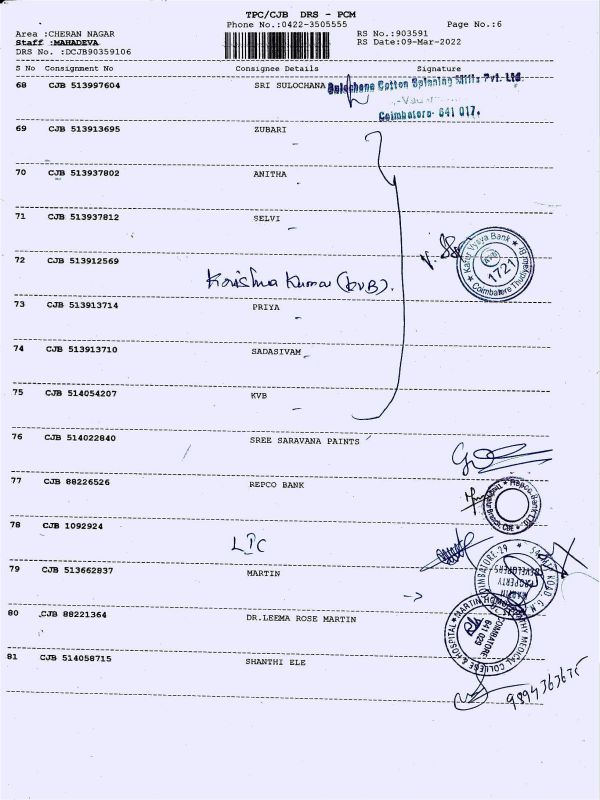 TPC/CJB DRS - PCM
Phone No.:0422-3505555
Page No.:6
Area :CHERAN NAGAR
RS No.:903591
Staff :MAHADEVA
RS Date:09-Mar-2022
DRS No. :DCJB90359106
S No Consignment No Consignee Details Signature
68 CJB 513997604 SRI SULOCHANA
Sulochana Cotton Spinning Mills Pvt. Ltd
Coimbatore- 641 017.
69 CJB 513913695 ZUBARI
70 CJB 513937802 ANITHA
71 CJB 513937812 SELVI
72 CJB 513912569
Krishna Kumar (KVB).
Karur Vysya Bank
KVB
1721
73 CJB 513913714 PRIYA
74 CJB 513913710 SADASIVAM
75 CJB 514054207 KVB
76 CJB 514022840 SREE SARAVANA PAINTS
77 CJB 88226526 REPCO BANK
Repco Bank Ltd.
78 CJB 1092924
LIC
79 CJB 513662837 MARTIN
MARTIN
PROPERTY
DEVELOPERS
80 CJB 88221364 DR.LEEMA ROSE MARTIN
MARTIN HOMOEOPATHY MEDICAL COLLEGE & HOSPITAL
COIMBATORE
641 029
81 CJB 514058715 SHANTHI ELE
9894363635